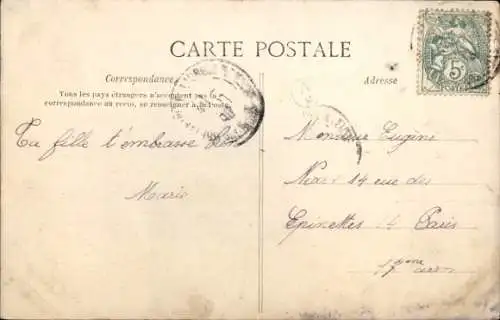 CARTE POSTALE
Correspondance
Adresse
Tous les pays étrangers n'acceptent pas de
correspondance au recto, se renseigner à la Poste
Ta fille t'embrasse
Marie
Monsieur Eugène
14 rue des
Epinettes à Paris
17eme
5
POSTES